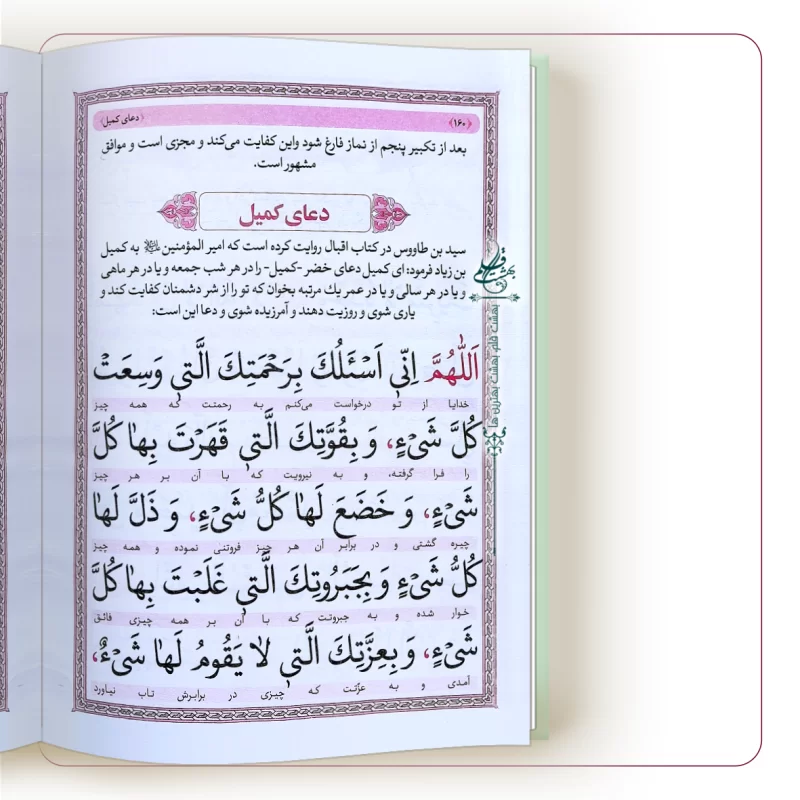 ﴿۱۶۰﴾
﴿دعای کمیل﴾
بعد از تکبیر پنجم از نماز فارغ شود واین کفایت می‌کند و مجزی است و موافق
مشهور است.
دعای کمیل
سید بن طاووس در کتاب اقبال روایت کرده است که امیر المؤمنین به کمیل
بن زیاد فرمود: ای کمیل دعای خضر -کمیل- را در هر شب جمعه و یا در هر ماهی
و یا در هر سالی و یا در عمر یك مرتبه بخوان که تو را از شر دشمنان کفایت کند و
یاری شوی و روزیت دهند و آمرزیده شوی و دعا این است:
اَللّٰهُمَّ اِنّی اَسْئَلُكَ بِرَحْمَتِكَ الَّتی وَسِعَتْ
خدایا از تو درخواست می‌کنم به رحمتت که همه چیز
کُلَّ شَیْءٍ، وَ بِقُوَّتِكَ الَّتی قَهَرْتَ بِها کُلَّ
را فرا گرفته، و به نیرویت که با آن بر هر چیز
شَیْءٍ، وَ خَضَعَ لَها کُلُّ شَیْءٍ، وَ ذَلَّ لَها
چیره گشتی و در برابر آن هر چیز فروتنی نموده و همه چیز
کُلُّ شَیْءٍ وَ بِجَبَرُوتِكَ الَّتی غَلَبْتَ بِها کُلَّ
خوار شده و به جبروتت که با آن بر همه چیزی فائق
شَیْءٍ، وَ بِعِزَّتِكَ الَّتی لا یَقُومُ لَها شَیْءٌ،
آمدی و به عزّتت که چیزی در برابرش تاب نیاورد
بهشت قلم
بهشت قلم، بهشت بهترین ها